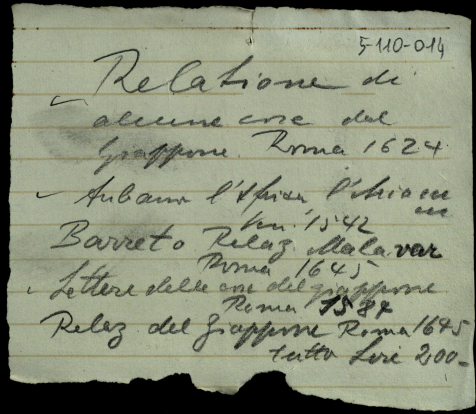 5-110-014
Relatione di
alcune cose del
Giappone. Roma 1624
l'Africa l'Asia
Ven. 1542
Barreto Relaz Malavar
Roma 1645
Lettere delle cose del giappone
Roma 1584
Relaz del Giappone Roma 1645
tutto Lire 200-